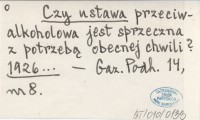 Czy ustawa przeciw-
alkoholowa jest sprzeczna
z potrzebą obecnej chwili?
1926... — Gaz. Podh. 14,
nr 8.
57/010/0138